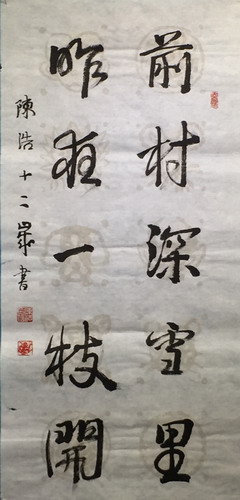 前村深雪里
昨夜一枝開
陳浩十二歲書